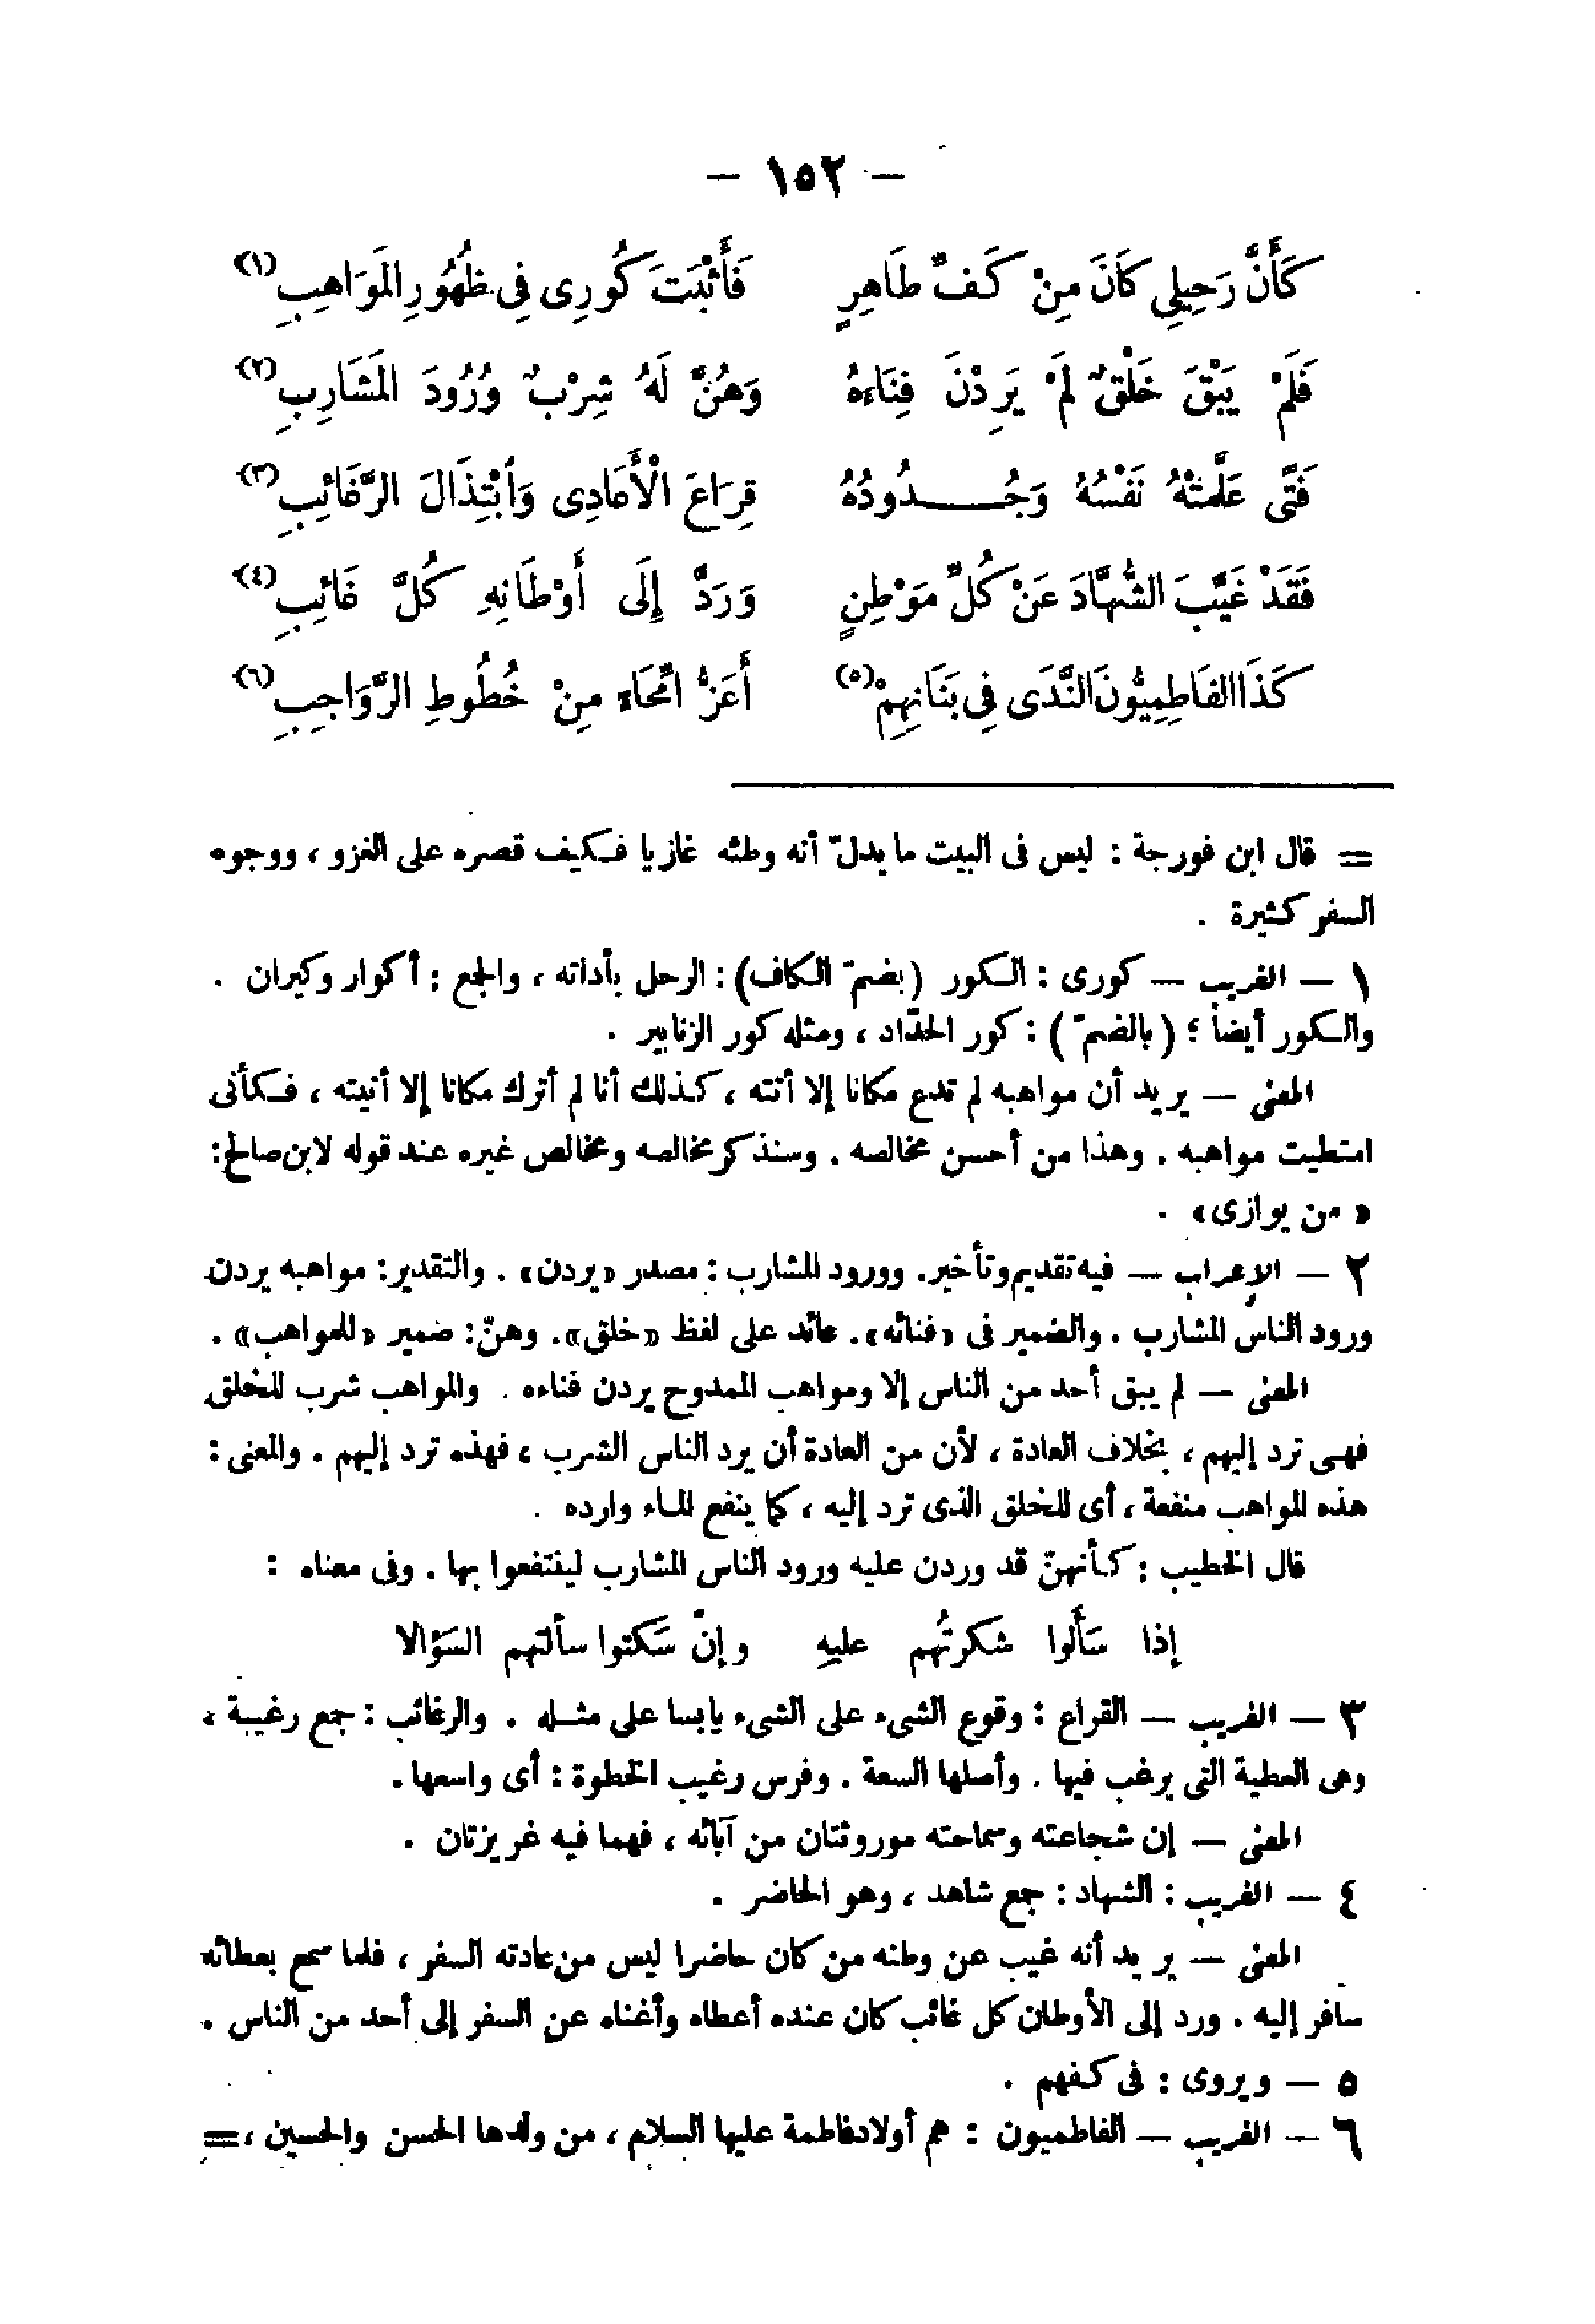 — ١٥٢ —
كَأَنَّ رَحِيلِى كَانَ مِنْ كَفِّ طَاهِرٍ فَأَثْبَتَ كُورِى فِى ظُهُورِ المَوَاهِبِ (١)
فَلَمْ يَبْقَ خَلْقٌ لَمْ يَرِدْنَ فِنَاءَهُ وَهُنَّ لَهُ شِرْبٌ وُرُودَ المَشَارِبِ (٢)
فَتًى عَلَّمَتْهُ نَفْسُهُ وَجُــدُودُهُ قِرَاعَ الْأَعَادِى وَٱبْتِذَالَ الرَّغَائِبِ (٣)
فَقَدْ غَيَّبَ الشُّهَّادَ عَنْ كُلِّ مَوْطِنٍ وَرَدَّ إِلَى أَوْطَانِهِ كُلَّ غَائِبِ (٤)
كَذَا الفَاطِمِيُّونَ النَّدَى فِى بَنَانِهِمْ (٥) أَعَزُّ امِّحَاءً مِنْ خُطُوطِ الرَّوَاجِبِ (٦)
= قال ابن فورجة : ليس فى البيت ما يدلّ أنه وطئه غازيا فكيف قصره على الغزو ، ووجوه
السفر كثيرة .
١ — الغريب — كورى : الكور (بضمّ الكاف) : الرحل بأداته ، والجمع : أكوار وكيران .
والكور أيضا ؛ (بالضمّ ) : كور الحدّاد ، ومثله كور الزنابير .
المعنى — يريد أن مواهبه لم تدع مكانا إلا أتته ، كذلك أنا لم أترك مكانا إلا أتيته ، فكأنى
امتطيت مواهبه . وهذا من أحسن مخالصه . وسنذكر مخالصه ومخالص غيره عند قوله لابن صالح :
« من يوازى » .
٢ — الإعراب — فيه تقديم وتأخير . وورود المشارب : مصدر «يردن» . والتقدير : مواهبه يردن
ورود الناس المشارب . والضمير فى «فنائه» . عائد على لفظ «خلق» . وهنّ : ضمير «للمواهب» .
المعنى — لم يبق أحد من الناس إلا ومواهب الممدوح يردن فناءه . والمواهب شرب للخلق
فهى ترد إليهم ، بخلاف العادة ، لأن من العادة أن يرد الناس الشرب ، فهذه ترد إليهم . والمعنى :
هذه المواهب منفعة ، أى للخلق الذى ترد إليه ، كما ينفع الماء وارده .
قال الخطيب : كأنهنّ قد وردن عليه ورود الناس المشارب لينتفعوا بها . وفى معناه :
إذا سَأَلوا شكرتُهم عليهِ وإنْ سَكتوا سألتهم السؤالا
٣ — الغريب — القراع : وقوع الشىء على الشىء يابسا على مثله . والرغائب : جمع رغيبة ،
وهى العطية التى يرغب فيها . وأصلها السعة . وفرس رغيب الخطوة : أى واسعها .
المعنى — إن شجاعته وسماحته موروثتان من آبائه ، فهما فيه غريزتان .
٤ — الغريب : الشهاد : جمع شاهد ، وهو الحاضر .
المعنى — يريد أنه غيب عن وطنه من كان حاضرا ليس من عادته السفر ، فلما سمع بعطائه
سافر إليه . ورد إلى الأوطان كل غائب كان عنده أعطاه وأغناه عن السفر إلى أحد من الناس .
٥ — ويروى : فى كفهم .
٦ — الغريب — الفاطميون : هم أولاد فاطمة عليها السلام ، من ولدها الحسن والحسين ، =